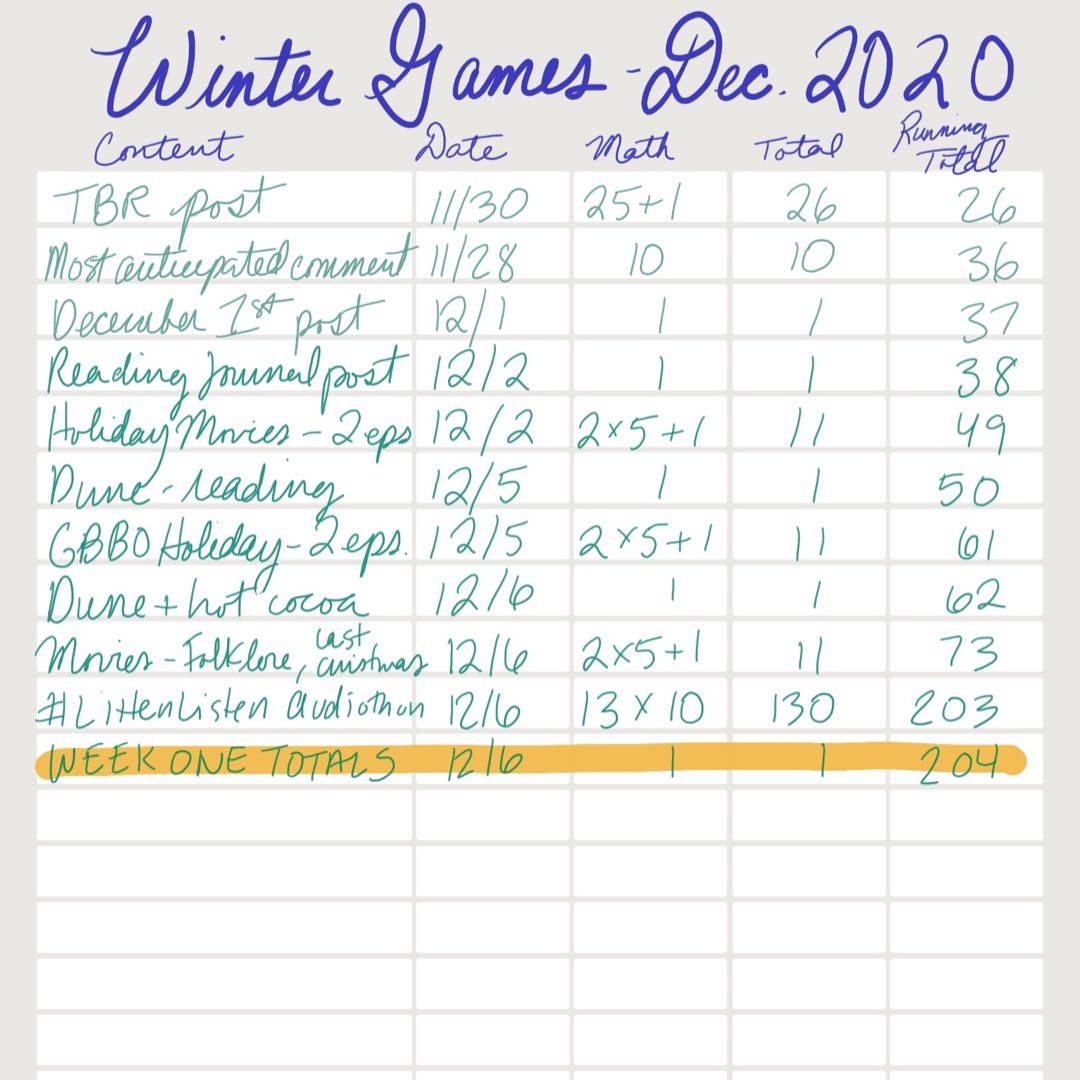 Winter Games - Dec. 2020
Content Date Math Total Running Total
TBR post 11/30 25+1 26 26
Most anticipated comment 11/28 10 10 36
December 1st post 12/1 1 1 37
Reading Journal post 12/2 1 1 38
Holiday Movies - 2 eps 12/2 2x5+1 11 49
Dune - reading 12/5 1 1 50
GBBO Holiday - 2 eps. 12/5 2x5+1 11 61
Dune + hot cocoa 12/6 1 1 62
Movies - Folklore, Last Christmas 12/6 2x5+1 11 73
#LittenListen Audiothon 12/6 13 x 10 130 203
WEEK ONE TOTALS 12/6 1 1 204